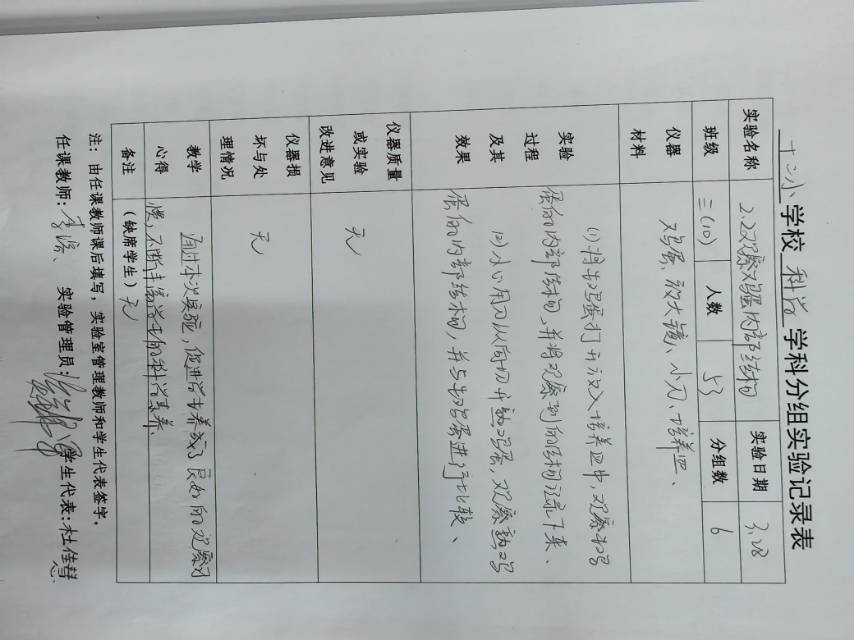 十二小 学校 科学 学科分组实验记录表
实验名称 2.2观察鸡蛋的内部结构 实验日期 3.28
班级 三(10) 人数 53 分组数 6
仪器材料 鸡蛋、放大镜、小刀、培养皿、
实验过程及其效果
(1) 将生鸡蛋打开放入培养皿中,观察生鸡
蛋的内部结构,并将观察到的结构记录下来、
(2) 小心用刀从向切开熟鸡蛋,观察熟鸡
蛋的内部结构,并与生鸡蛋进行比较、
仪器质量或实验改进意见 无
仪器损坏与处理情况 无
教学心得 通过本次实验,促进学生养成了良好的观察习
惯,不断丰富学生的科学素养、
备注 (缺席学生) 无
注:由任课教师课后填写,实验室管理教师和学生代表签字。
任课教师: 李 实验管理员: 学生代表: 杜佳慧